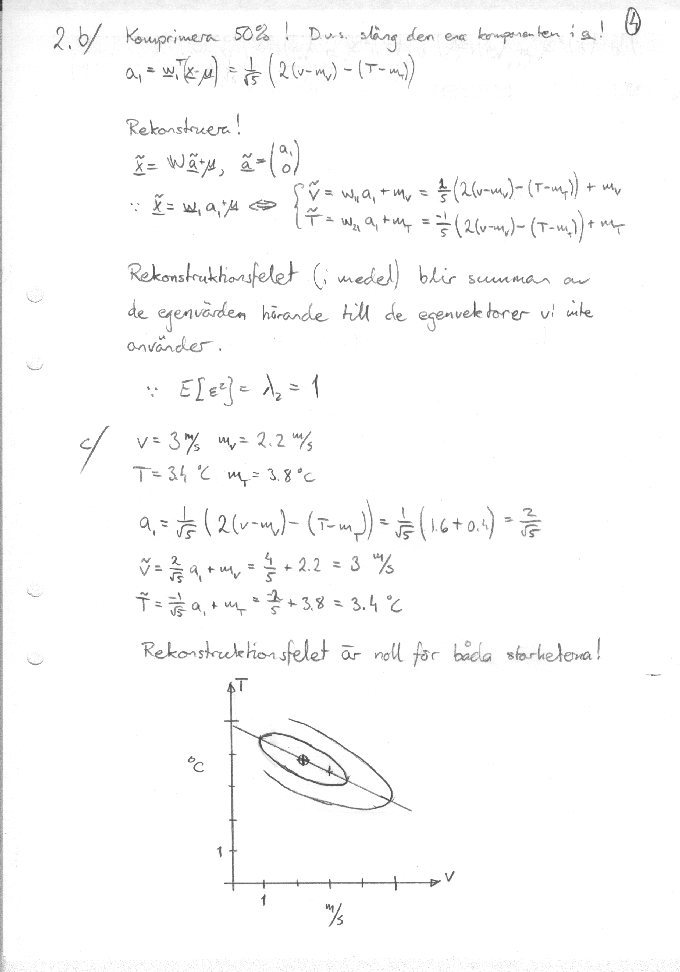 ④
2.b/ Komprimera 50% ! D.v.s. släng den ena komponenten i a!
a₁ = w₁ᵀ(x-μ) = 1/√5 (2(v-m_v) - (T-m_T))
Rekonstruera!
x̃ = Wã+μ, ã = (a₁ 0)
∵ x̃ = w₁a₁+μ ⇔ { ṽ = w₁₁a₁ + m_v = 2/5 (2(v-m_v)-(T-m_T)) + m_v
T̃ = w₂₁a₁ + m_T = -1/5 (2(v-m_v)-(T-m_T)) + m_T
Rekonstruktionsfelet (i medel) blir summan av
de egenvärden hörande till de egenvektorer vi inte
använder.
∵ E[ε²] = λ₂ = 1
c/ v = 3 m/s m_v = 2.2 m/s
T = 3.4 °C m_T = 3.8 °C
a₁ = 1/√5 (2(v-m_v) - (T-m_T)) = 1/√5 (1.6 + 0.4) = 2/√5
ṽ = 2/√5 a₁ + m_v = 4/5 + 2.2 = 3 m/s
T̃ = -1/√5 a₁ + m_T = -2/5 + 3.8 = 3.4 °C
Rekonstruktionsfelet är noll för båda storheterna!
T
°C
1
V
1
m/s